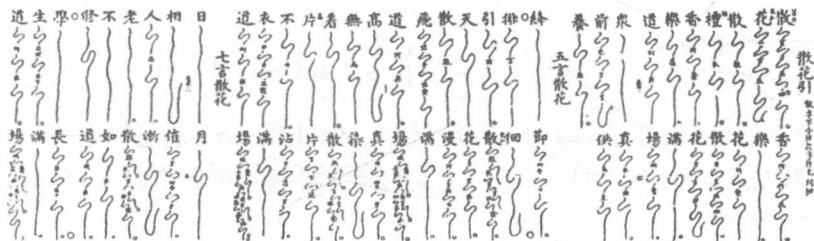 散花引
散香
花樂
散花
禮散
香花
樂滿
道場
眾真
前供
養
五言散花
絳節
徘徊
引散
天花
散漫
飛滿
道場
高真
無染
着散
片片
不沾
衣滿
道場
七言散花
日月
相催
人漸
老散
不如
修道
學長
生滿
道場